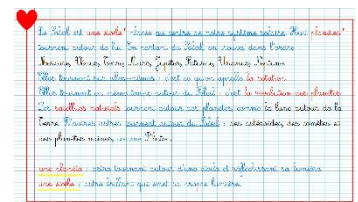 Le Soleil est une étoile* située au centre de notre système solaire. Huit planètes*
tournent autour de lui. En partant du Soleil, on trouve dans l'ordre
Mercure, Vénus, Terre, Mars, Jupiter, Saturne, Uranus, Neptune.
Elles tournent sur elles-mêmes : c'est ce qu'on appelle la rotation.
Elles tournent en même temps autour du Soleil : c'est la révolution des planètes.
Les satellites naturels tournent autour des planètes, comme la Lune autour de la
Terre. D'autres astres tournent autour du Soleil : des astéroïdes, des comètes et
des planètes naines, comme Pluton.
une planète : astre tournant autour d'une étoile et réfléchissant sa lumière.
une étoile : astre brillant qui émet sa propre lumière.